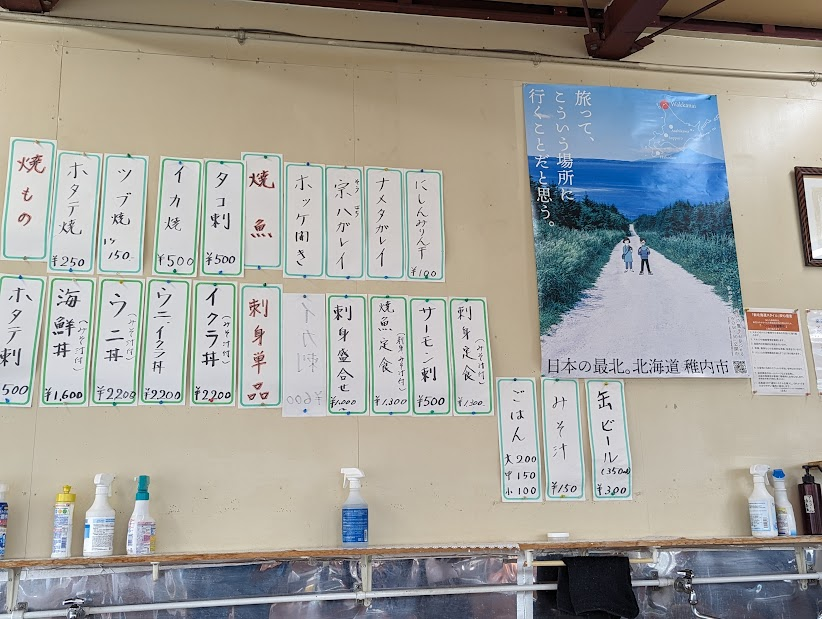 焼もの
ホタテ焼
¥250
ツブ焼
1ツ
150-
イカ焼
¥500
タコ刺
¥500
焼魚
ホッケ開き
宗八ガレイ
そう はち
ナメタガレイ
にしんみりん干
¥100
ホタテ刺
500
海鮮丼
(みそ汁付)
¥1,600
ウニ丼
(みそ汁付)
¥2,200
ウニ、イクラ丼
(みそ汁付)
¥2200
イクラ丼
(みそ汁付)
¥2200
刺身単品
イカ刺
¥600
刺身盛合せ
¥1,000
焼魚定食
(刺身みそ汁付)
¥1,300
サーモン刺
¥500
刺身定食
(みそ汁付)
¥1,300
ごはん
大200
中150
小100
みそ汁
¥150
缶ビール
(350ml)
¥300
旅って、
こういう場所に
行くことだと思う。
Wakkanai
日本の最北。北海道 稚内市